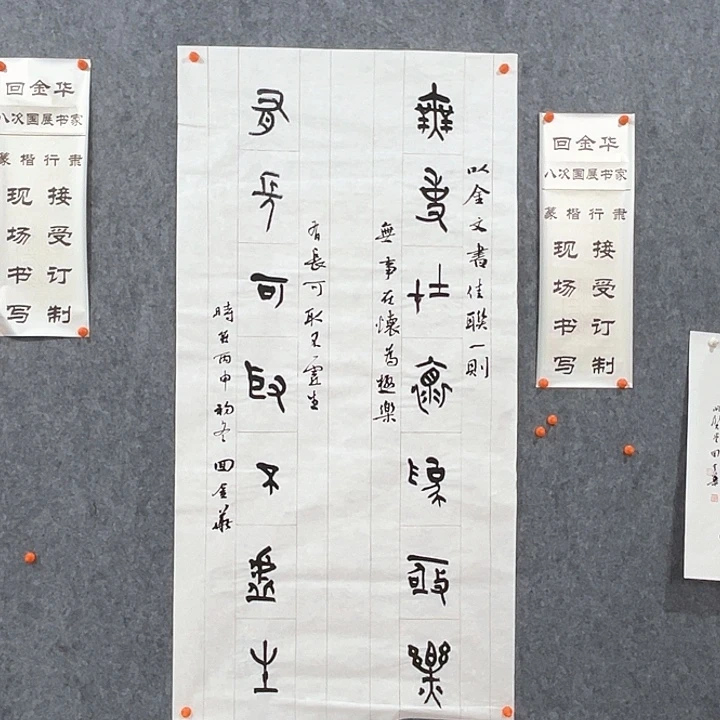 回金华
八次国展书家
篆楷行隶
现场书写
接受订制
以金文書佳聯一則
無事在懷為極樂
無事在懷為極樂
有長可取不虛生
有長可取不虛生
時在丙申初冬 回金華
回金华
八次国展书家
篆楷行隶
现场书写
接受订制